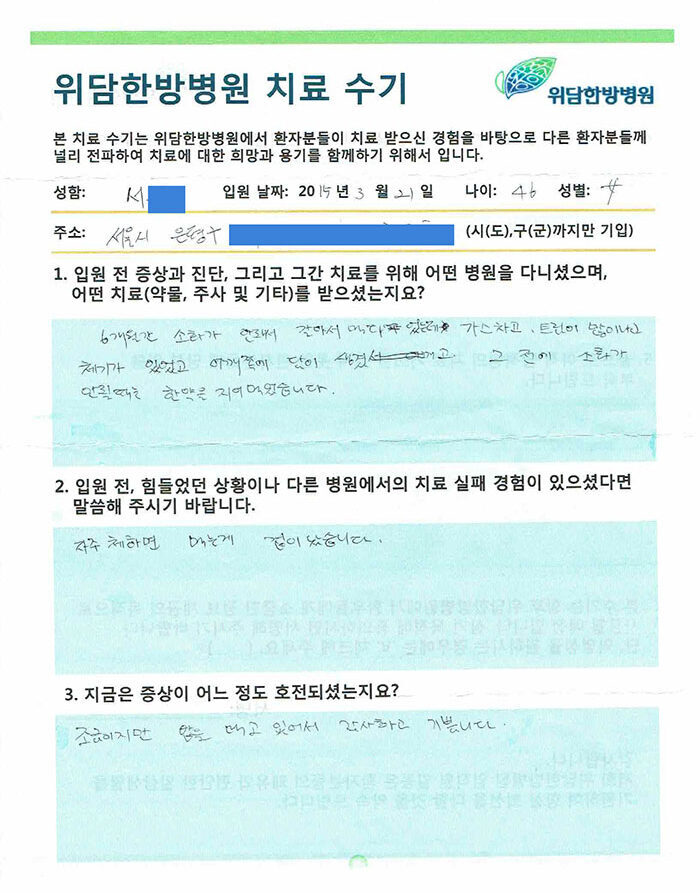 위담한방병원 치료 수기
위담한방병원
본 치료 수기는 위담한방병원에서 환자분들이 치료 받으신 경험을 바탕으로 다른 환자분들께
널리 전파하여 치료에 대한 희망과 용기를 함께하기 위해서 입니다.
성함: 서 입원 날짜: 2015년 3월 21일 나이: 46 성별: 女
주소: 서울시 은평구 (시(도),구(군)까지만 기입)
1. 입원 전 증상과 진단, 그리고 그간 치료를 위해 어떤 병원을 다니셨으며,
어떤 치료(약물, 주사 및 기타)를 받으셨는지요?
6개월간 소화가 안돼서 갈아서 먹다 가스차고, 트림이 많이나고
체기가 있었고 어깨쪽에 담이 생겼 그 전에 소화가
안될때는 한약을 지어먹었습니다.
2. 입원 전, 힘들었던 상황이나 다른 병원에서의 치료 실패 경험이 있으셨다면
말씀해 주시기 바랍니다.
자주 체하면 먹는게 겁이 났습니다.
3. 지금은 증상이 어느 정도 호전되셨는지요?
조금이지만 밥을 먹고 있어서 감사하고 기쁩니다.